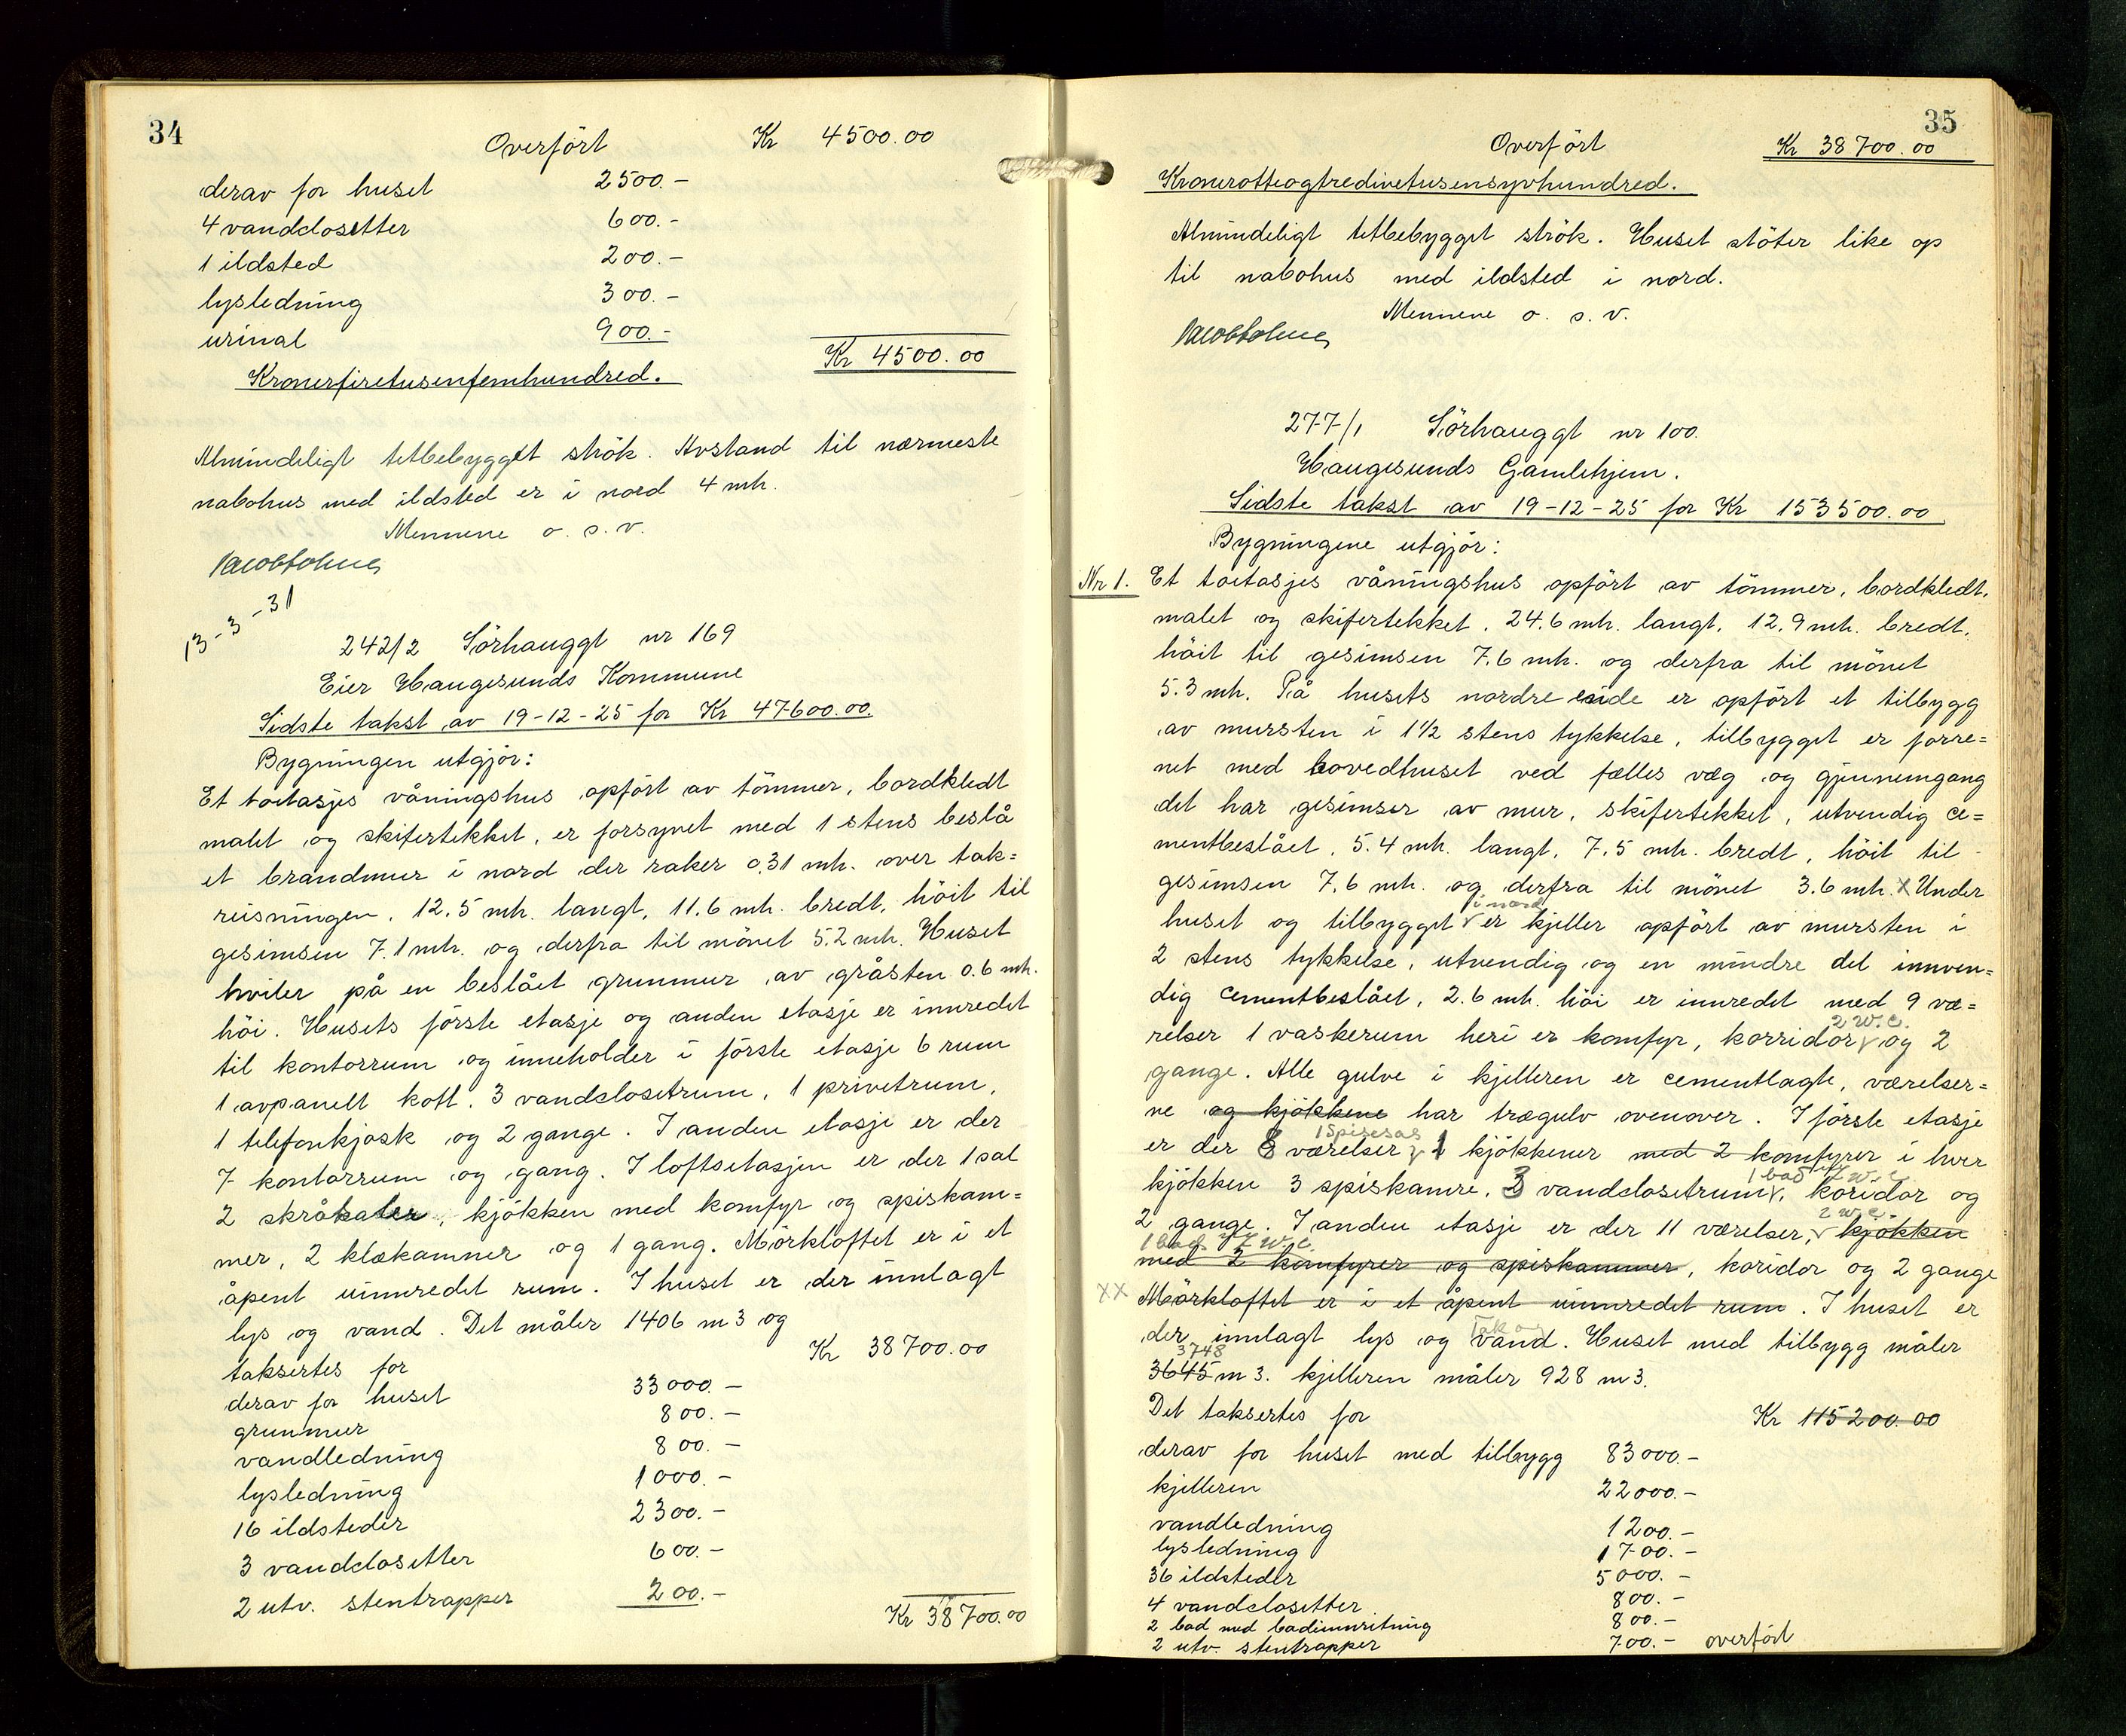 34
Overført Kr 4500.00
derav for huset 2500.-
4 vandclosetter 600.-
1 ildsted 200.-
lysledning 300.-
urinal 900.-
Kr 4500.00
Kronerfiretusenfemhundred.
Almindeligt tetbebygget strök. Avstand til nærmeste
nabohus med ildsted er i nord 4 mh.
Mennene o. s. v.
13-3-31
242/2 Sörhauggt nr 169
Eier Haugesunds Kommune
Sidste takst av 19-12-25 for Kr 47600.00.
Bygningen utgjör:
Et toetasjes våningshus opfört av tömmer, bordkledt
malet og skifertekket, er forsynet med 1 stens beslå
et brandmur i nord der raker 0.31 mh. over tak=
reisningen. 12.5 mh. langt, 11.6 mh. bredt, höit til
gesimsen 7.1 mh. og derfra til mönet 5.2 mh. Huset
hviler på en beslået grunmur av gråsten 0.6 mh.
höi. Husets förste etasje og anden etasje er innredet
til kontorrum og inneholder i förste etasje 6 rum
1 avpanelt kott. 3 vandclosetrum, 1 privetrum,
1 telefonkjosk og 2 gange. I anden etasje er der
7 kontorrum og gang. I loftsetasjen er der 1 sal
2 skråkater, kjökken med komfyr og spiskam=
mer, 2 klækamner og 1 gang. Mörkloftet er i et
åpent uinnredet rum. I huset er der innlagt
lys og vand. Det måler 1406 m3 og
taksertes for Kr 38700.00
derav for huset 33000.-
grunmur 800.-
vandledning 800.-
lysledning 1000.-
16 ildsteder 2300.-
3 vandclosetter 600.-
2 utv. stentrapper 200.-
Kr 38700.00
35
Overfört Kr 38700.00
Kronerotteogtredivetusensyvhundred.
Almindeligt tetbebygget strök. Huset stöter like op
til nabohus med ildsted i nord.
Mennene o. s. v.
277/1 Sörhauggt nr 100.
Haugesunds Gamlehjem.
Sidste takst av 19-12-25 for Kr 153500.00
Bygningene utgjör:
Nr 1. Et toetasjes våningshus opfört av tömmer, bordkledt,
malet og skifertekket. 24.6 mh. langt, 12.9 mh. bredt,
höit til gesimsen 7.6 mh. og derfra til mönet
5.3 mh. På husets nordre ende er opfört et tilbygg
av mursten i 1 1/2 stens tykkelse, tilbygget er forre=
net med hovedhuset ved fælles væg og gjennemgang
det har gesimser av mur, skifertekket, utvendig ce=
mentbeslået. 5.4 mh. langt, 7.5 mh. bredt, höit til
gesimsen 7.6 mh. og derfra til mönet 3.6 mh. x Under
i nord
huset og tilbygget v er kjeller opfört av mursten i
2 stens tykkelse, utvendig og en mindre del innven=
dig cementbeslået, 2.6 mh. höi er innredet med 9 væ=
2 W.C.
relser 1 vaskerum heri er komfyr, korridor v og 2
gange. Alle gulve i kjelleren er cementlagte, værelser=
ne og kjökkene har trægulv ovenover. I förste etasje
1 spisesal
er der 8 værelser v 1 kjökkener med 2 komfyrer i hver
1 bad 7 W.C.
kjökken 3 spiskamre, 3 vandclosetrum v, koridor og
2 W.C.
2 gange. I anden etasje er der 11 værelser, v kjökken
1 bad 7 W.C.
med 2 komfyrer og spiskammer, koridor og 2 gange
xx Mörkloftet er i et åpent uinnredet rum. I huset er
Tak og
der innlagt lys og vand. Huset med tilbygg måler
3748
3645 m3. kjelleren måler 928 m3.
Det taksertes for Kr 115200.00
derav for huset med tilbygg 83000.-
kjelleren 22000.-
vandledning 1200.-
lysledning 1700.-
36 ildsteder 5000.-
4 vandclosetter 800.-
2 bad med badeinnretning 800.-
2 utv. stentrapper 700.- overfört